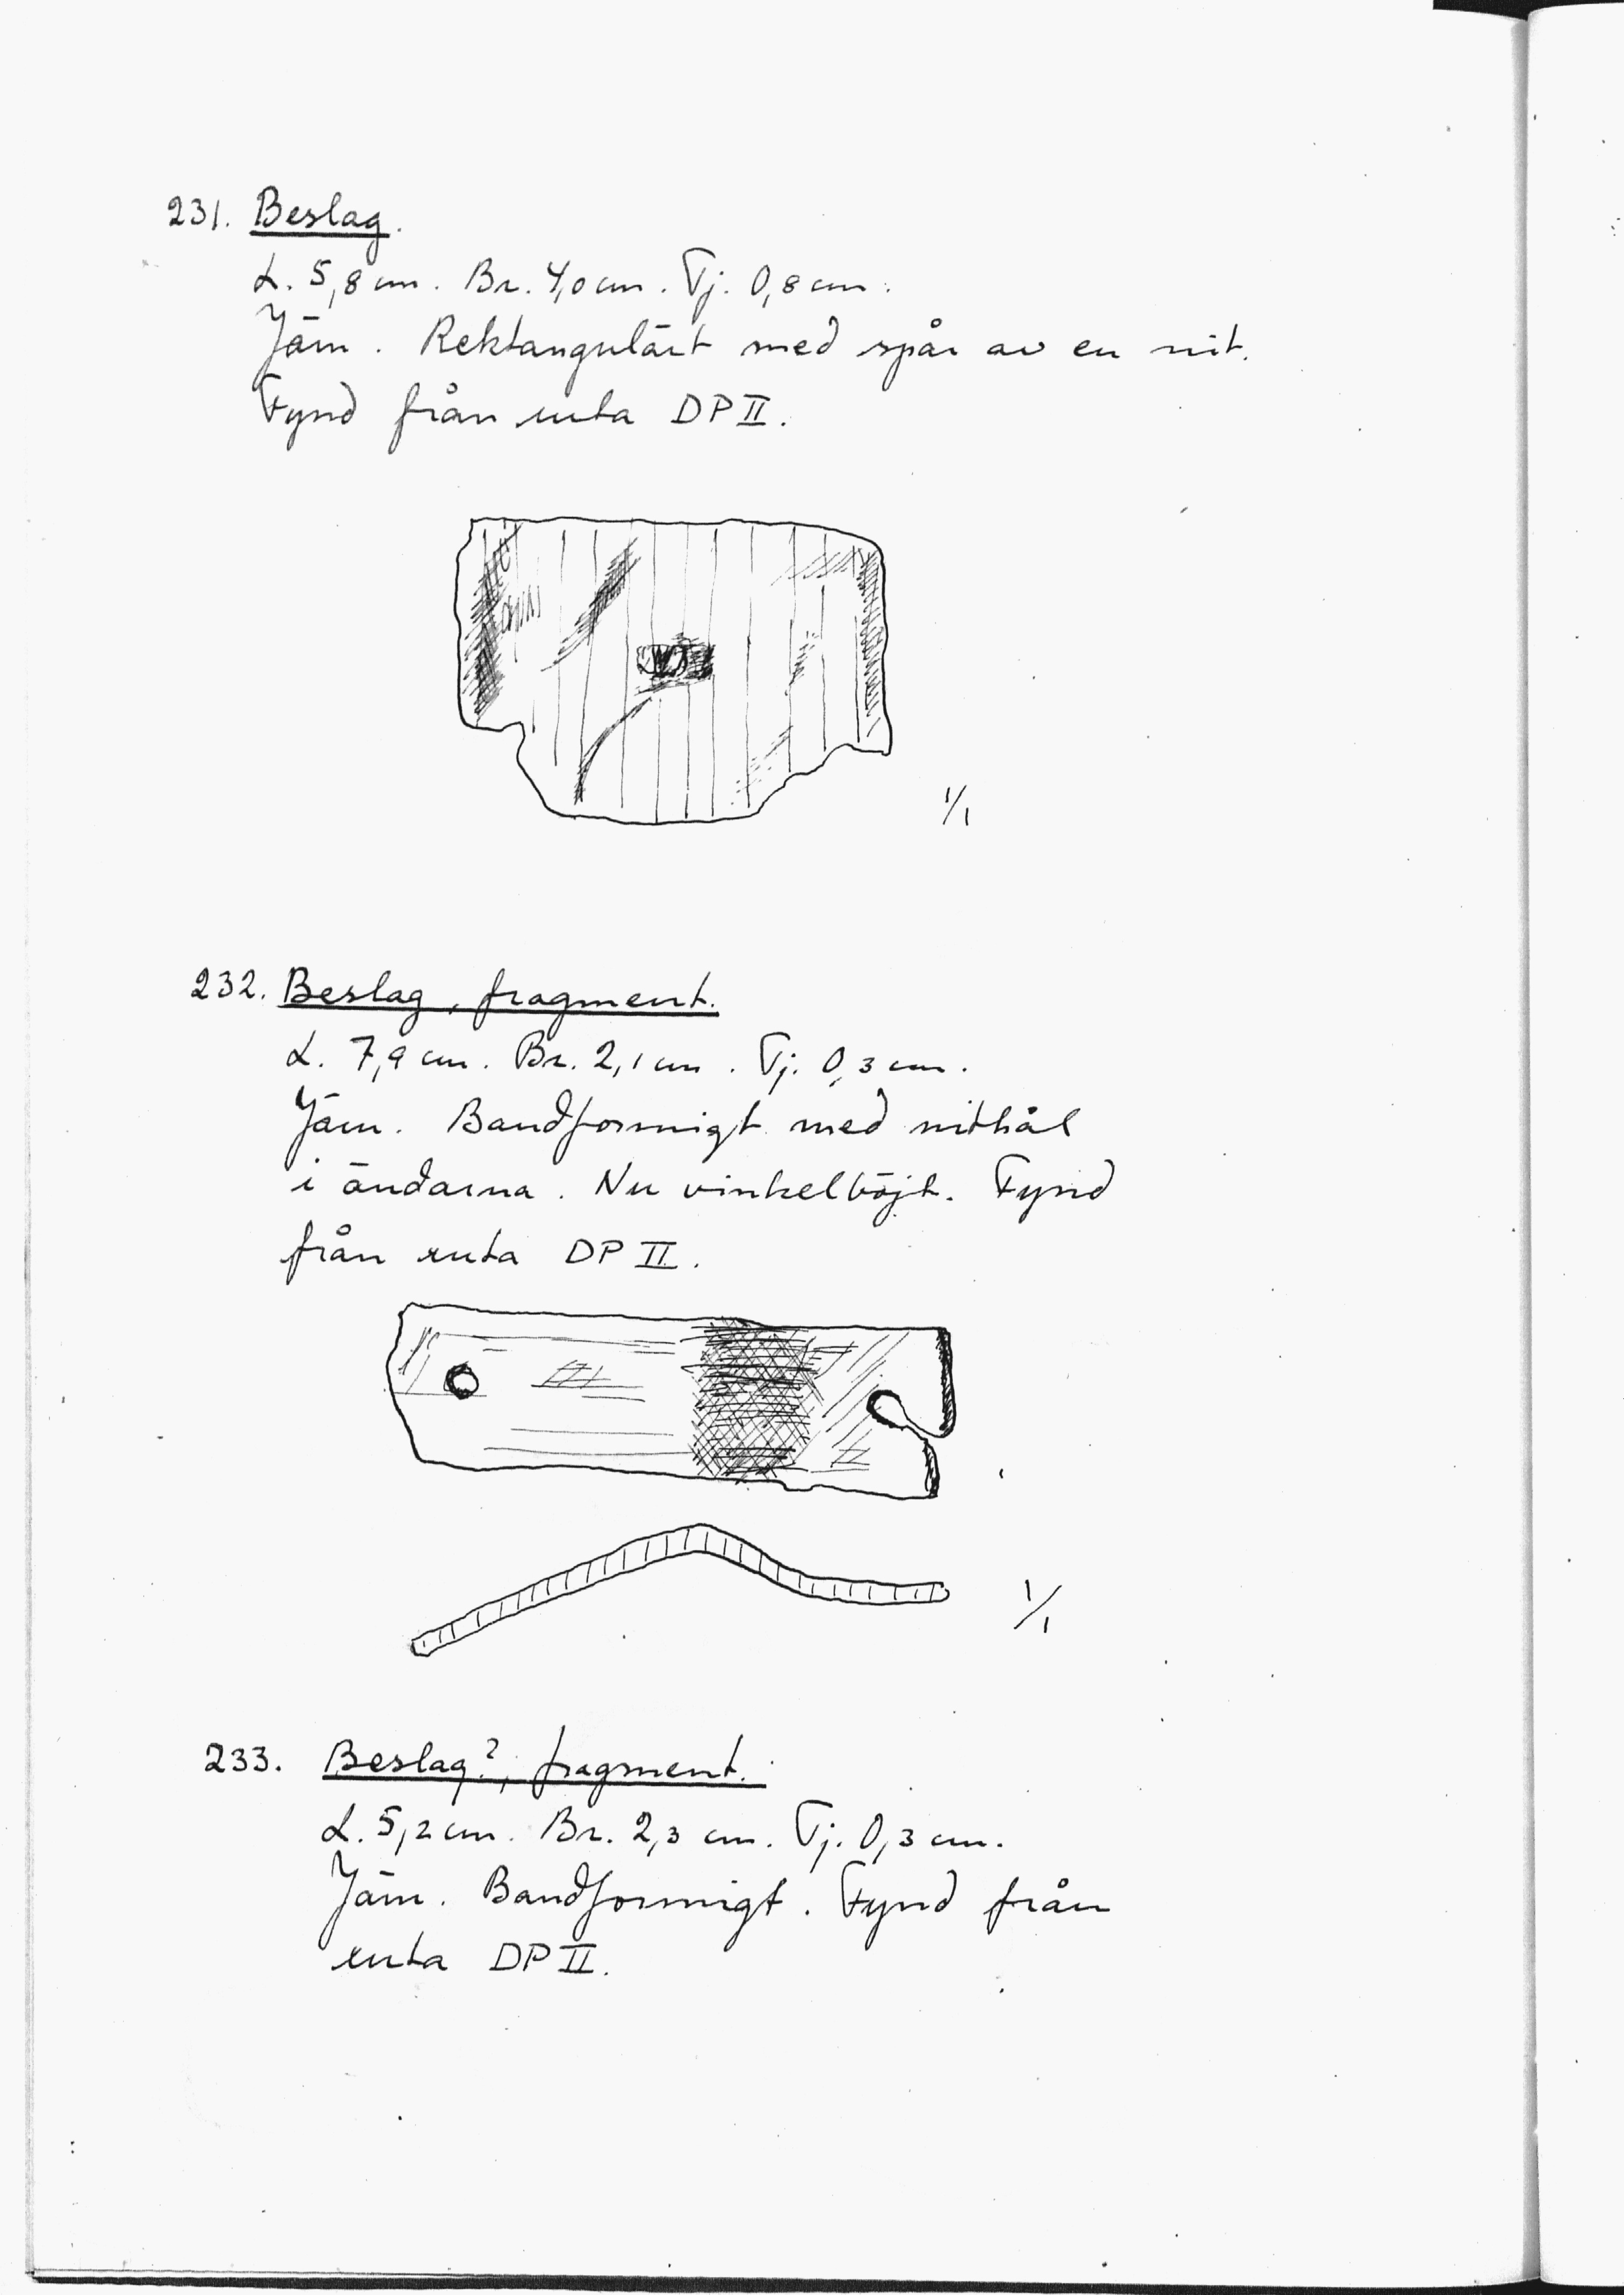 231. Beslag.
L. 5,8 cm. Br. 4,0 cm. Tj. 0,8 cm.
Järn. Rektangulärt med spår av en nit.
Fynd från ruta DP II.
1/1
232. Beslag, fragment.
L. 7,9 cm. Br. 2,1 cm. Tj. 0,3 cm.
Järn. Bandformigt med nithål
i ändarna. Nu vinkelböjt. Fynd
från ruta DP II.
1/1
233. Beslag?, fragment.
L. 5,2 cm. Br. 2,3 cm. Tj. 0,3 cm.
Järn. Bandformigt. Fynd från
ruta DP II.